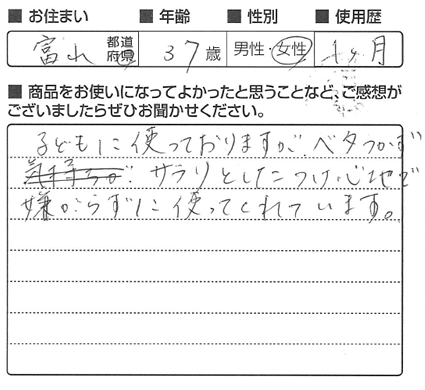 ■ お住まい ■ 年齢 ■ 性別 ■ 使用歴
富山 都道府県 37歳 男性・女性 1ヶ月
■ 商品をお使いになってよかったと思うことなど、ご感想が
ございましたらぜひお聞かせください。
子どもに使っておりますが、ベタつかず
気持ちが サラリとしたつけ心地で
嫌がらずに使ってくれています。